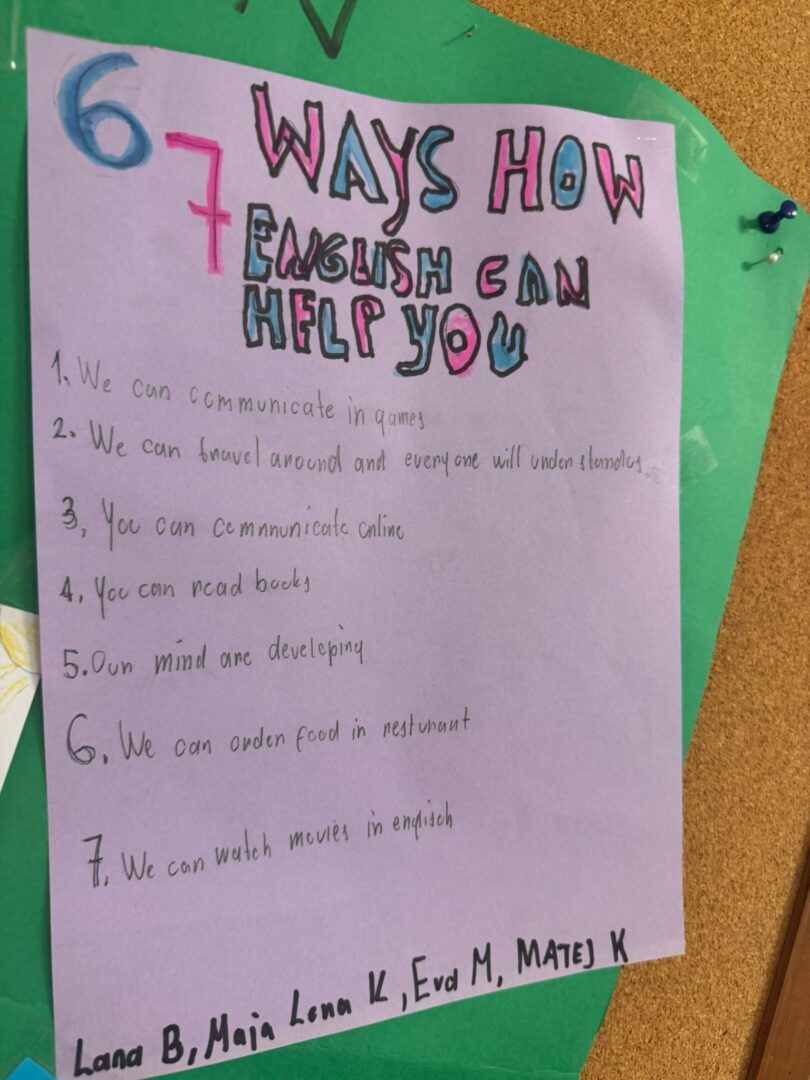 6 7 WAYS HOW
ENGLISH CAN
HELP YOU
1. We can communicate in games
2. We can travel around and everyone will understand us
3. You can communicate online
4. You can read books
5. Our mind are developing
6. We can order food in resturant
7. We can watch movies in englisch
Lana B, Maja Lena K, Eva M, MATEJ K